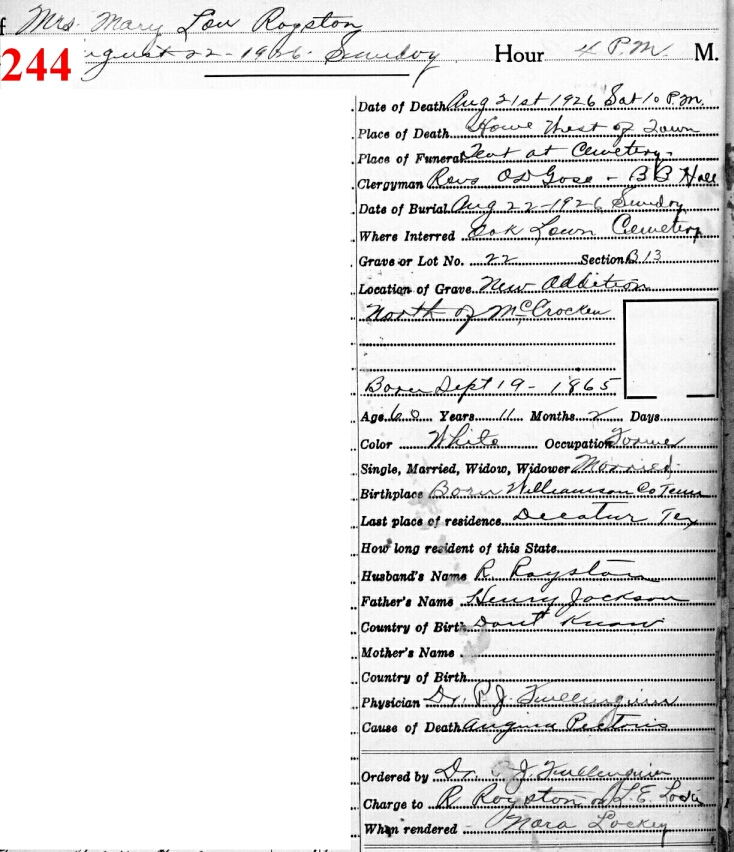 f Mrs. Mary Lou Royston
244 August 22-1926. Sunday Hour 4 P.M. M.
Date of Death Aug 21st 1926 Sat 10 P.M.
Place of Death Home West of Town
Place of Funeral Tent at Cemetery.
Clergyman Revs OD Gose - B B Hall
Date of Burial Aug 22-1926 Sunday
Where Interred Oak Lawn Cemetery
Grave or Lot No. 22 Section B 13
Location of Grave New Addition
North of McCrocken
Born Sept 19 - 1865
Age 60 Years 11 Months 2 Days
Color White Occupation
Single, Married, Widow, Widower Married
Birthplace Born Williamson Co Tenn
Last place of residence Decatur Tex
How long resident of this State
Husband's Name R. Royston
Father's Name Henry Jackson
Country of Birth Dont Know
Mother's Name
Country of Birth
Physician Dr. P. J. Fullingim
Cause of Death Angina Pectoris
Ordered by Dr. P. J. Fullingim
Charge to R Royston or L. E.
When rendered Nora Lockey